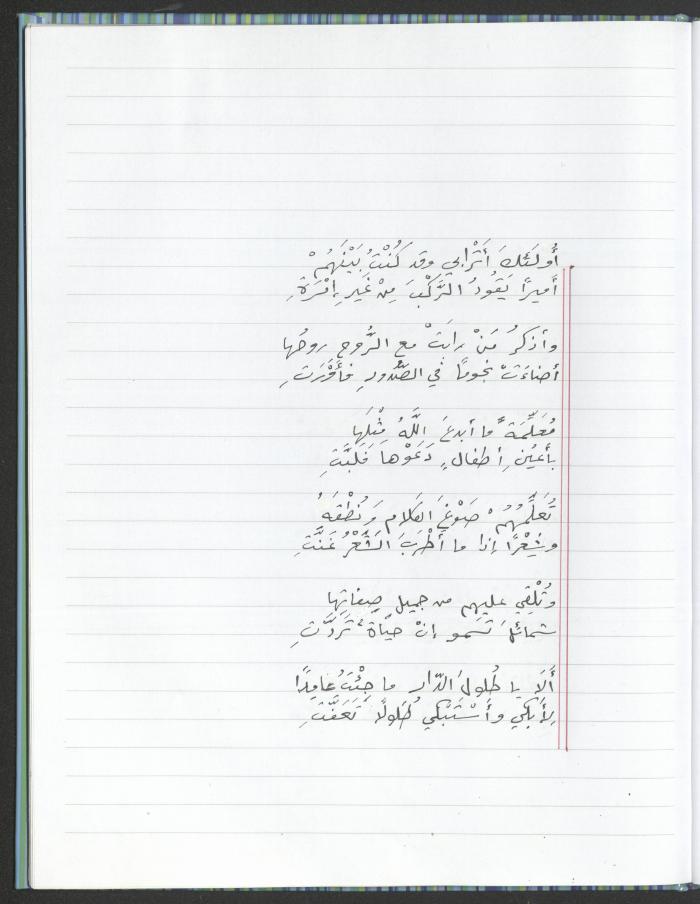 أُولَئِكَ أَتْرَابي وقد كُنْتُ بَيْنَهُمْ
أميرًا يَقُودُ الرَّكْبَ مِنْ غَيرِ إِمْرَةِ
وأذكرُ مَنْ رانَتْ مع الرُّوحِ روحُها
أضاءَتْ نجومًا في الصُّدُورِ فأَوْرَتِ
مُعَلِّمَةً ما أبدعَ اللَّهُ مِثْلَها
بأعيُنِ أطفالٍ دَعَوْها فَلَبَّتِ
تُعَلِّمُهُمْ صَوْغَ الكلامِ وَنُطْقَهُ
وشِعْرًا إذا ما أَطْرَبَ الشِّعْرُ غَنَّتِ
وتُلْقِي عليهم من جميلِ صِفاتِها
شمائلَ تَسمو إنْ حياةٌ تَرَدَّتِ
أَلَا يا طُلولَ الدّارِ ما جِئْتُ عامِدًا
لِأَبْكي وأَسْتَبْكي طُلولًا تَعَفَّتِ